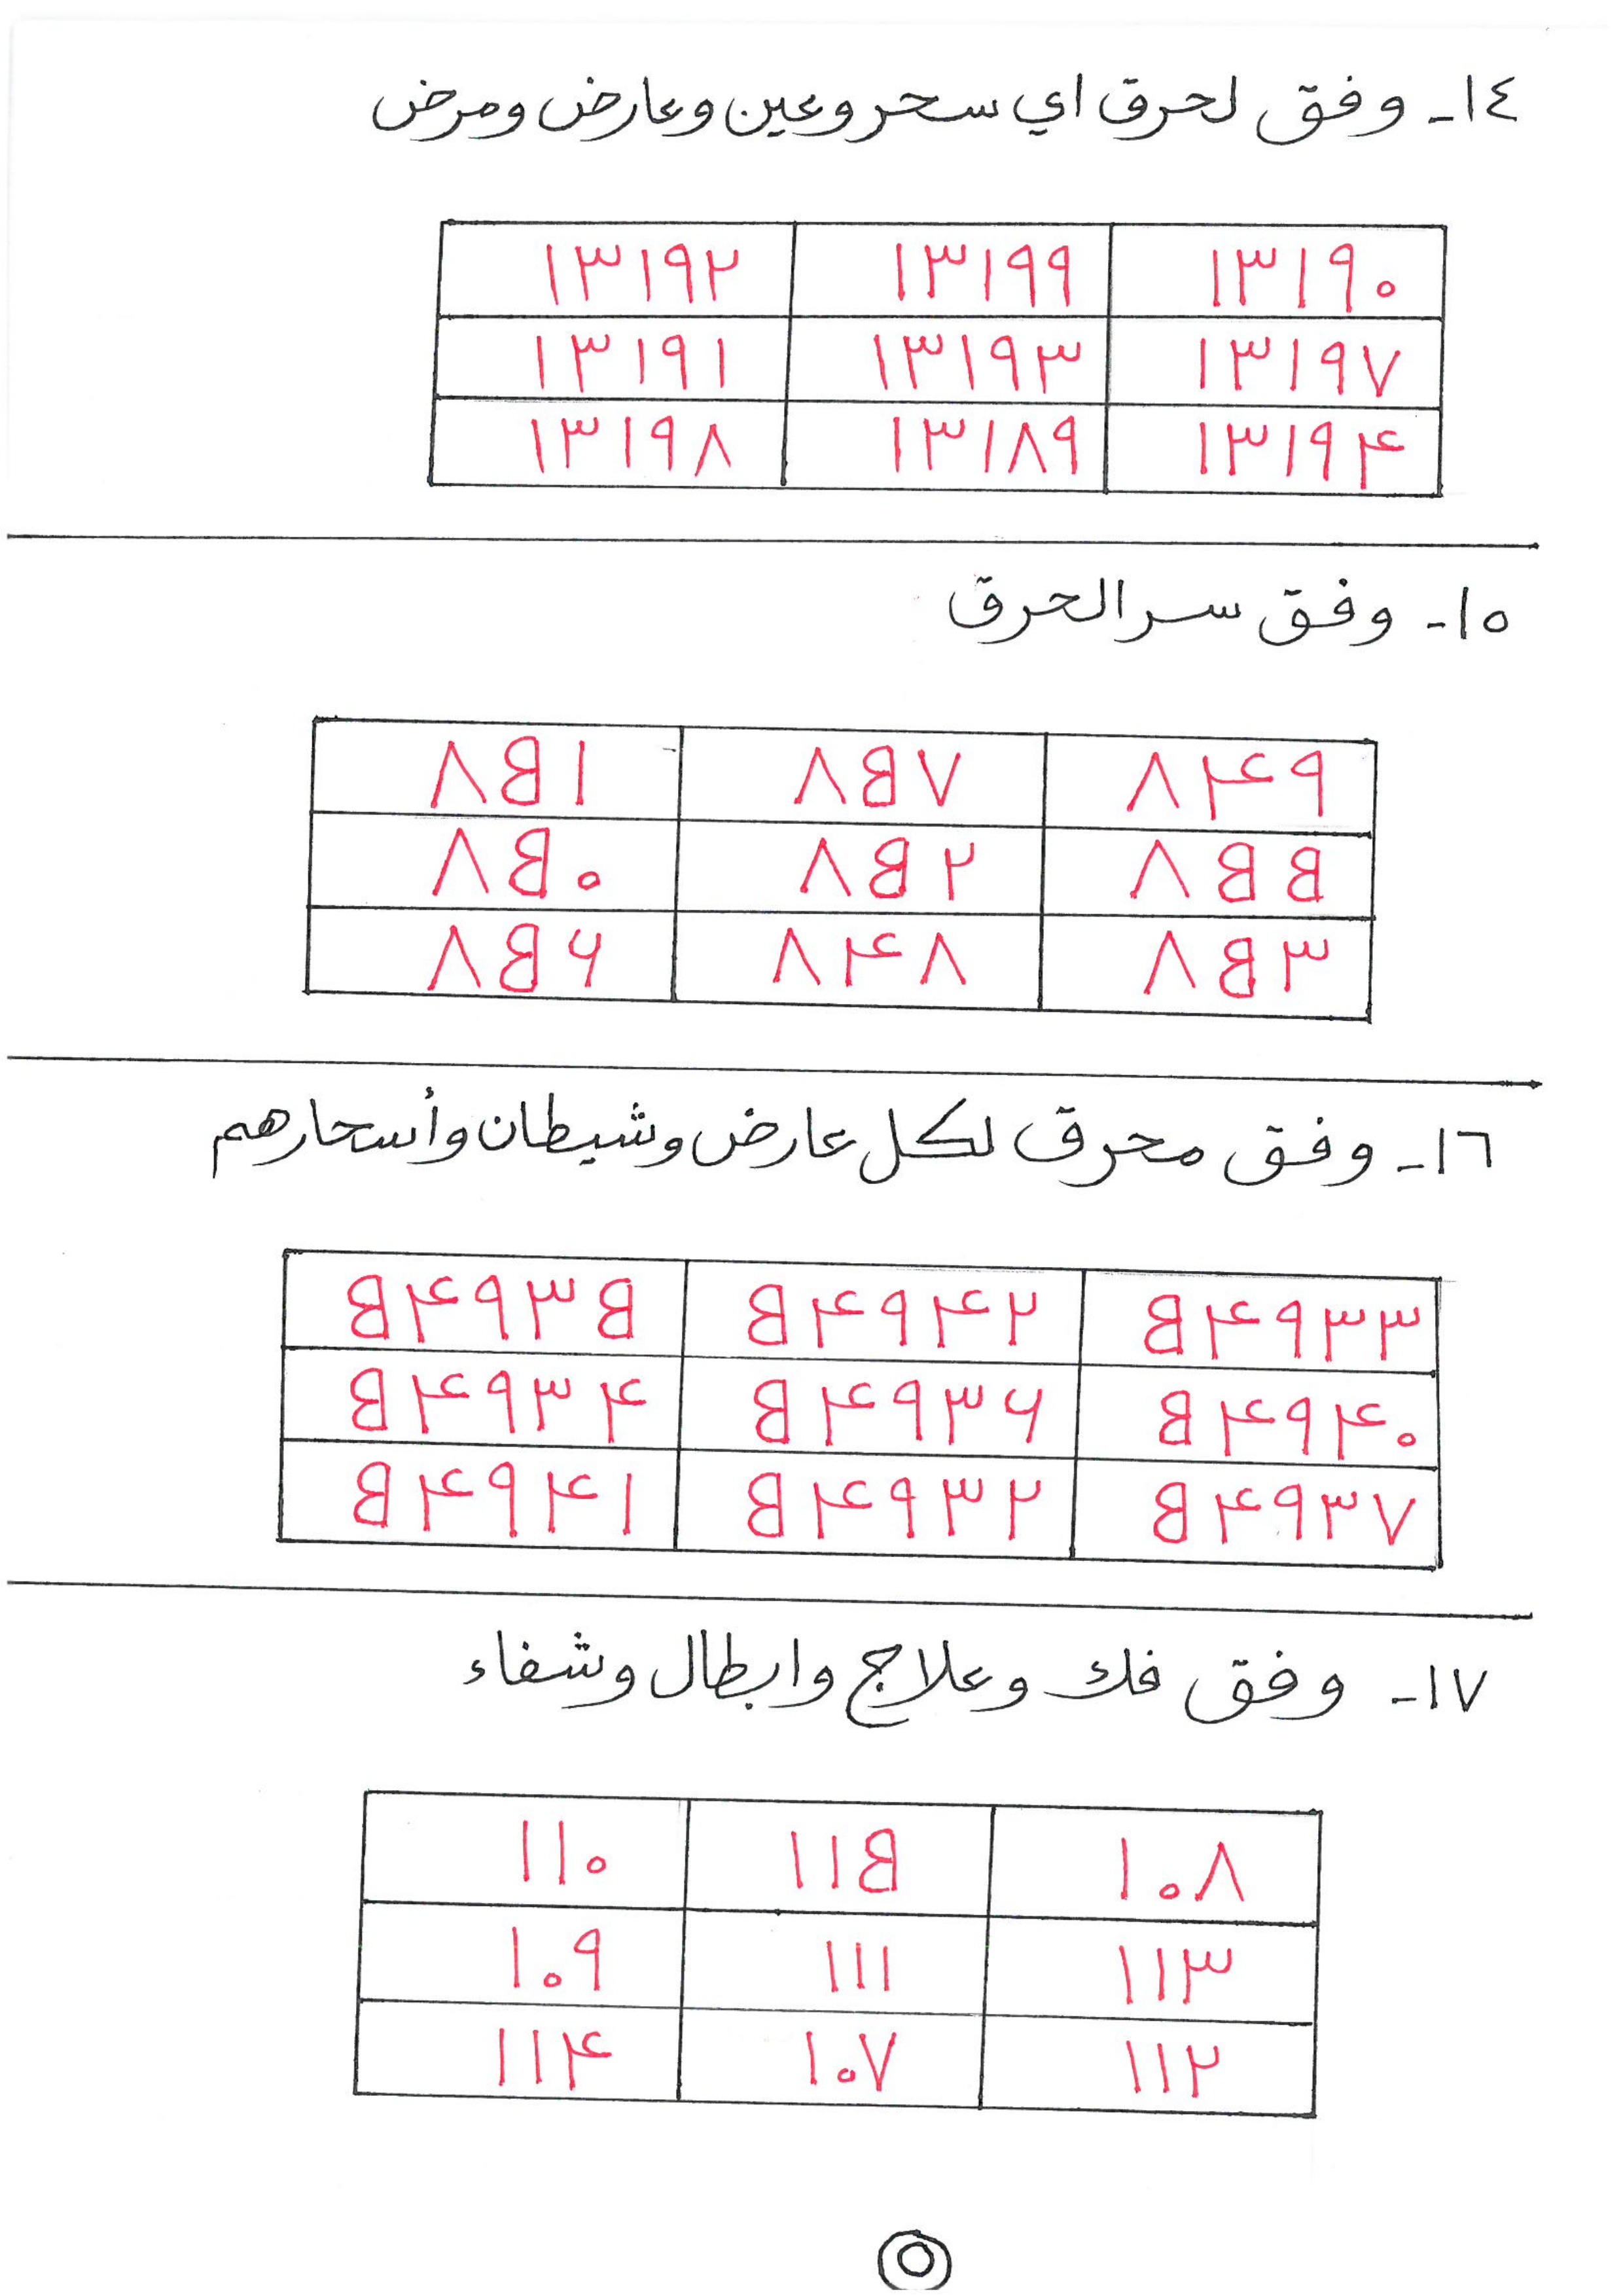 ١٤- وفق لحرق اي سحر وعين وعارض ومرض
١٣١٩٠ ١٣١٩٩ ١٣١٩٢
١٣١٩٧ ١٣١٩٣ ١٣١٩١
١٣١٩٤ ١٣١٨٩ ١٣١٩٨
١٥- وفق سر الحرق
٨٤٩ ٨٥٧ ٨٥١
٨٥٥ ٨٥٢ ٨٥٠
٨٥٣ ٨٤٨ ٨٥٦
١٦- وفق محرق لكل عارض وشيطان وأسحارهم
٥٤٩٣٣ ٥٤٩٤٢ ٥٤٩٣٥
٥٤٩٤٠ ٥٤٩٣٦ ٥٤٩٣٤
٥٤٩٣٧ ٥٤٩٣٢ ٥٤٩٤١
١٧- وفق فك وعلاج وابطال وشفاء
١٠٨ ١١٥ ١١٠
١١٣ ١١١ ١٠٩
١١٢ ١٠٧ ١١٤
٥